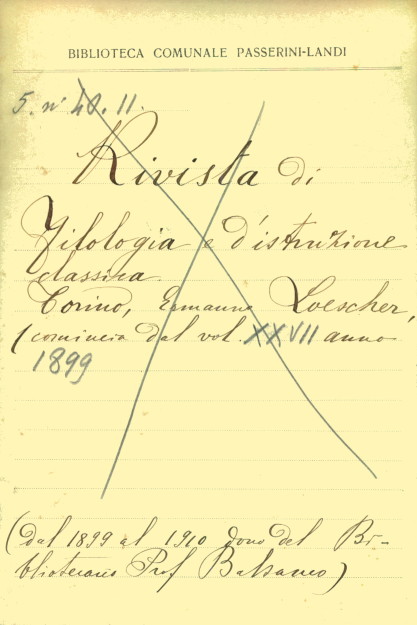 BIBLIOTECA COMUNALE PASSERINI-LANDI
5. nº 40. 11.
Rivista di
Filologia e d'istruzione
classica.
Torino, Ermanno Loescher,
(comincia dal vol. XXVII anno
1899
(dal 1899 al 1910 dono del Bi-
bliotecario Prof Balsamo)